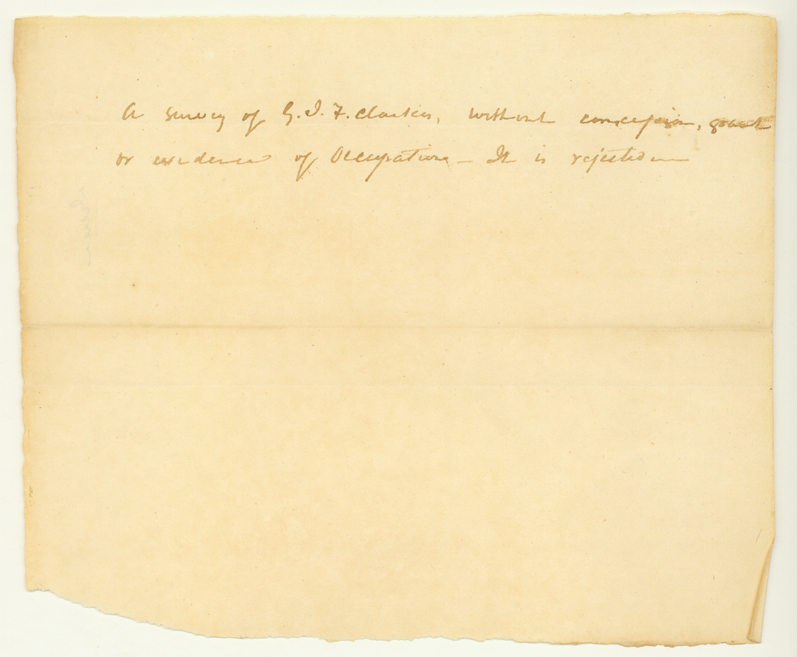 A survey of G. I. F. Clarkes, without concession, grant
or evidence of Occupation — It is rejected —